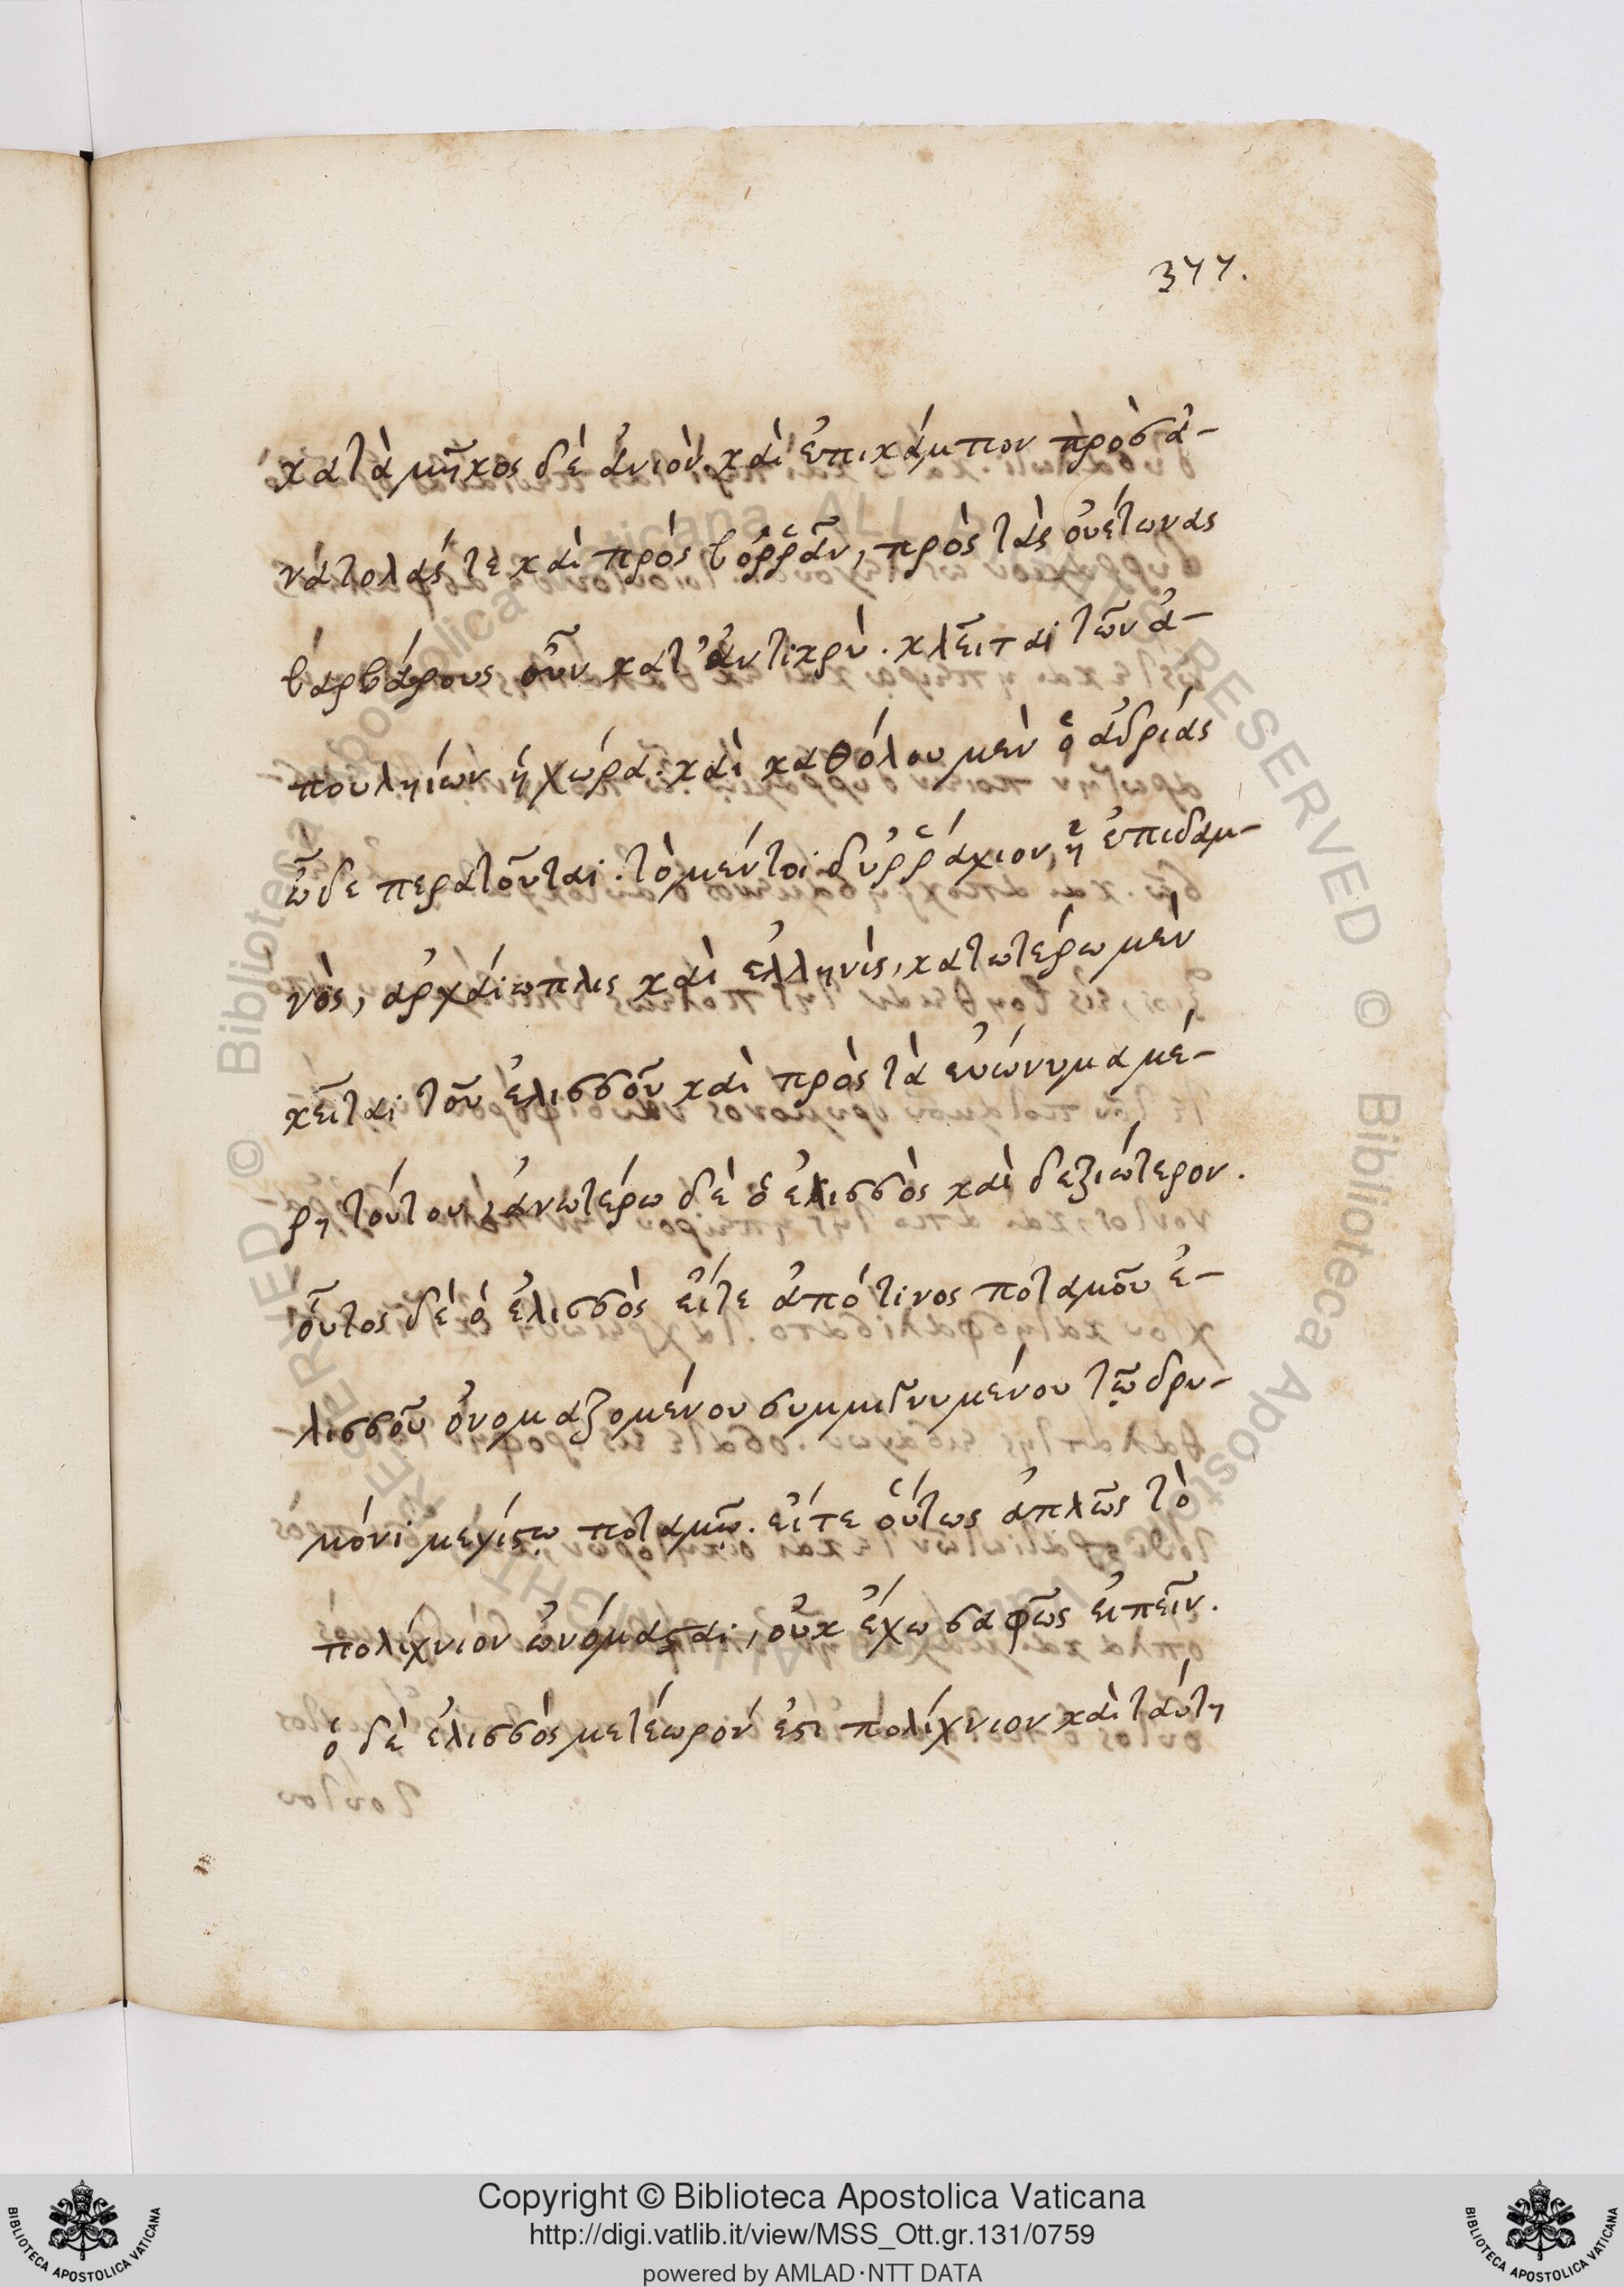 377.
κατὰ μῆκος δὲ ἀνιὸν καὶ ἐπικάμπιον πρὸς ἀ-
νάτολάς τε καὶ πρὸς βοῤῥᾶν, πρὸς τὰς οὐέτωνας
βαρβάρους οὖν κατ' ἀντικρὺ. κλεῖται τῶν ἀ-
πουληίων ἡ χώρα. καὶ καθόλου μὲν ὁ ἀδρίας
ὧδε περατοῦται. τὸ μέντοι δυῤῥάχιον, ἢ ἐπιδαμ-
νὸς, ἀρχαίωπλις καὶ ἑλληνὶς, κατωτέρω μὲν
κεῖται τοῦ ἐλισσοῦ καὶ πρὸς τὰ εὐώνυμα μέ-
ρη τούτου, ἀνωτέρω δὲ ὁ ἐλισσὸς καὶ δεξιώτερον.
οὗτος δὲ ὁ ἐλισσὸς εἴτε ἀπό τινος ποταμοῦ ἐ-
λισσοῦ ὀνομαζομένου συμμιγνυμένου τῷ δρυ-
μόνι μεγίστῳ ποταμῷ. εἴτε οὕτως ἁπλῶς τὸ
πολίχνιον ὠνόμασται, οὐκ ἔχω σαφῶς εἰπεῖν.
ὁ δὲ ἐλισσὸς μετέωρόν ἐστι πολίχνιον καὶ ταύτη
Copyright © Biblioteca Apostolica Vaticana
http://digi.vatlib.it/view/MSS_Ott.gr.131/0759
powered by AMLAD·NTT DATA
BIBLIOTECA APOSTOLICA VATICANA
BIBLIOTECA APOSTOLICA VATICANA